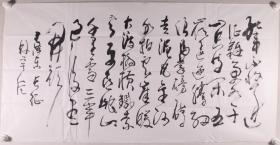 红军不怕远
征难万水千
山只等闲五
岭逶迤腾细
浪乌蒙磅礴
走泥丸金沙
水拍云崖暖
大渡桥横铁索
寒更喜岷山
千里雪三军
过后尽
开颜
毛泽东长征